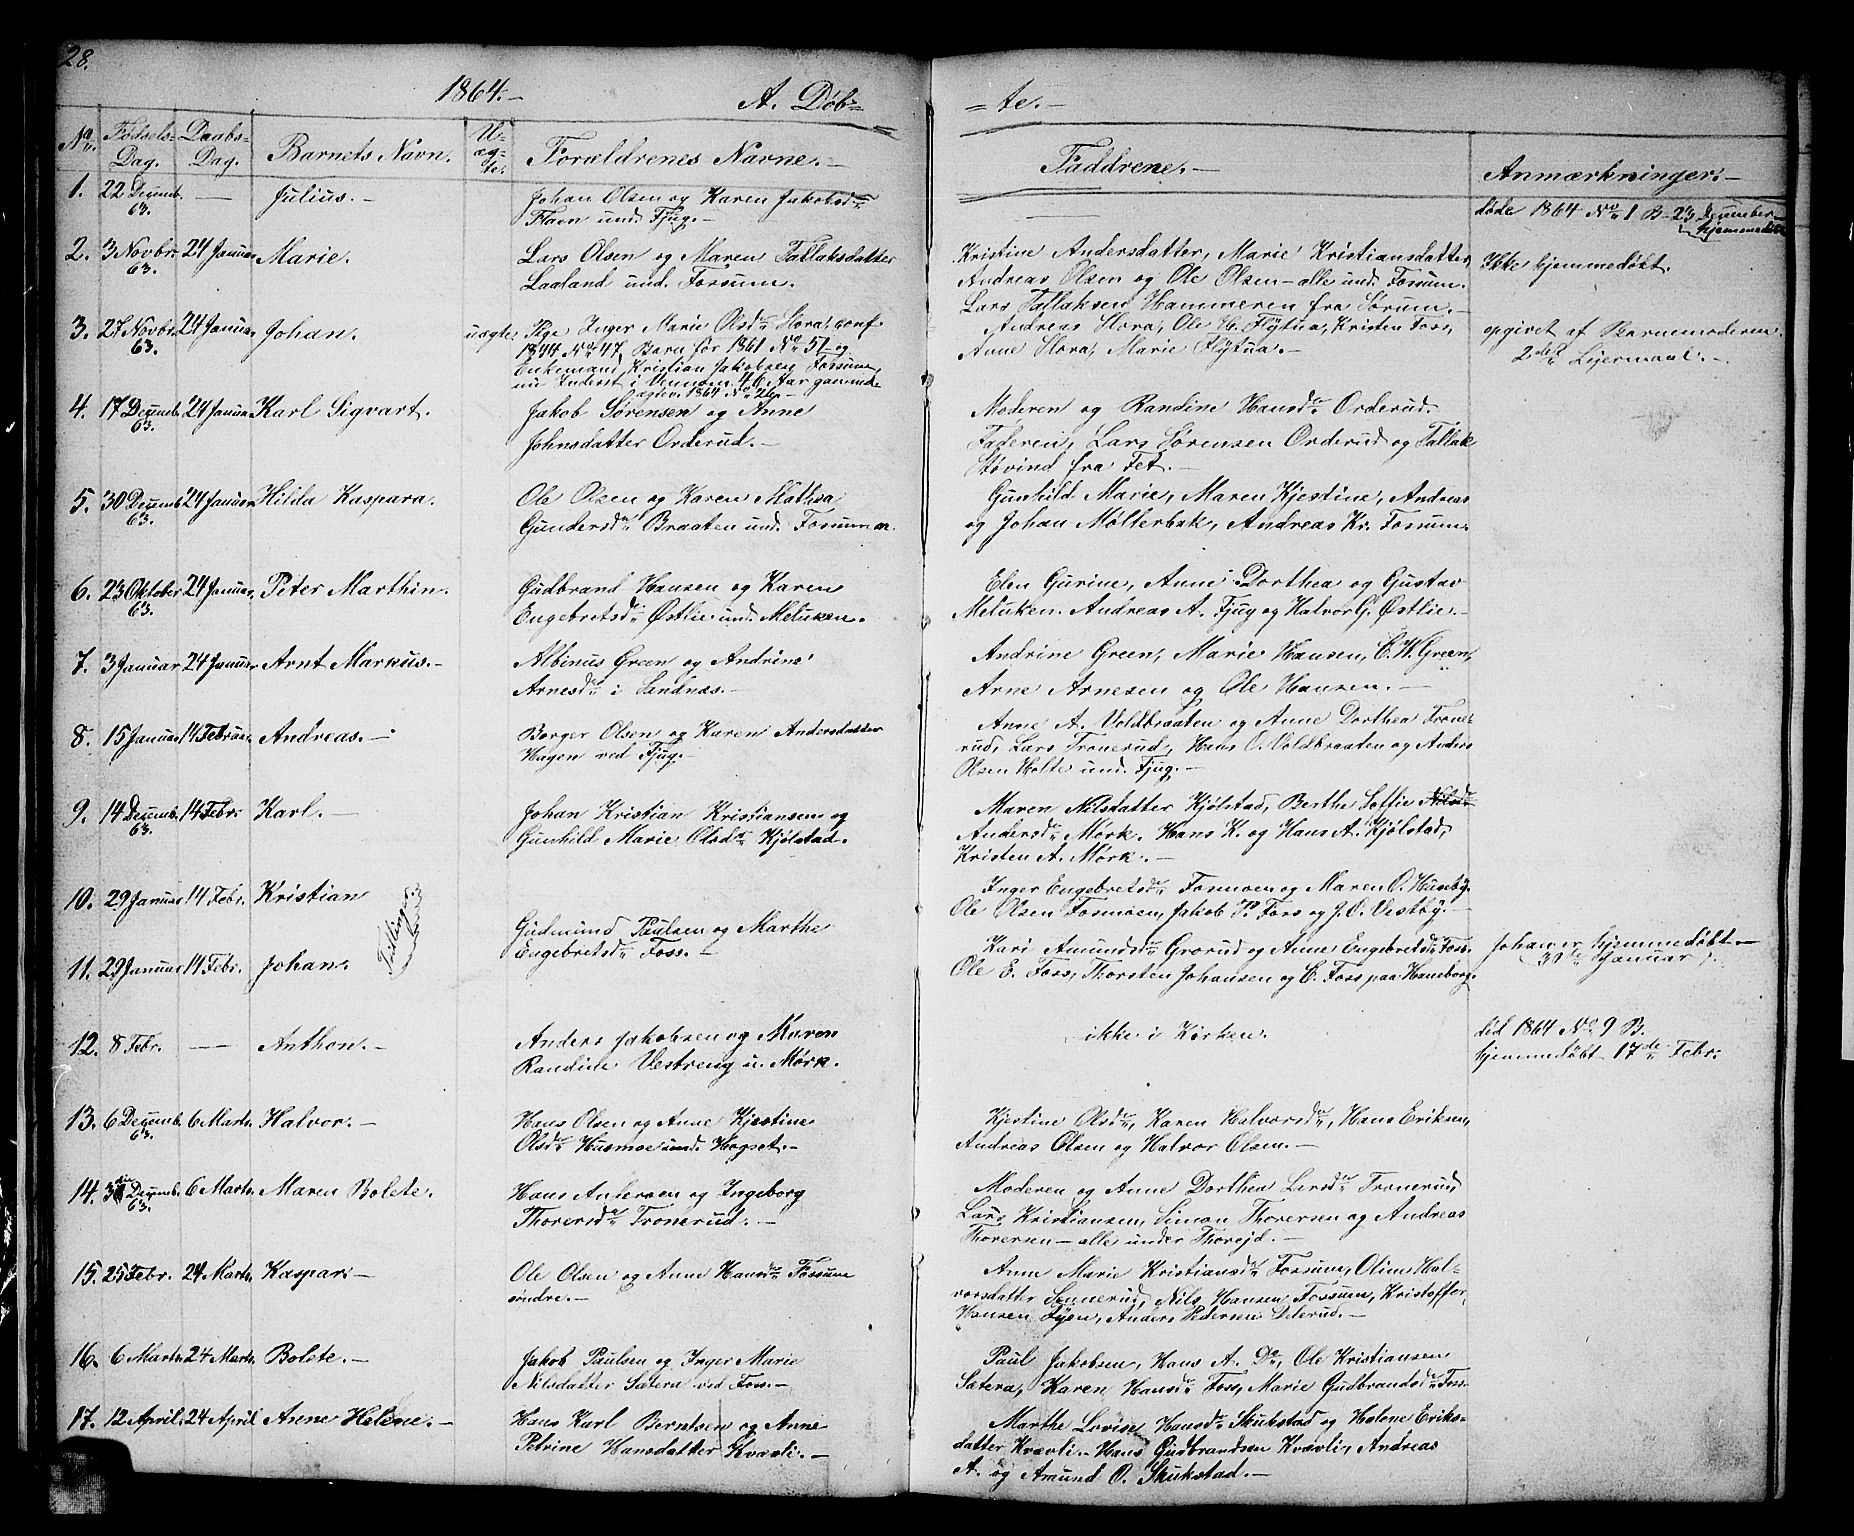 28.
1864.-
A. Døb= =te.-
No. Fødsels-Dag. Daabs-Dag. Barnets Navn. Uægte. Forældrenes Navne.- Faddrene.- Anmærkninger.-
1. 22 Decemb. 63. — Julius.- Johan Olsen og Karen Jakobsdr
Flaen und. Fjug.-
døde 1864 No 1 B- 23 December
hjemmedøbt
2. 3 Novbr. 63. 24 Januar Marie. Lars Olsen og Maren Tallaksdatter
Laaland und. Fossum.
Kristine Andersdatter, Marie Kristiansdatter,
Andreas Olsen og Ole Olsen - alle und. Fossum.
Lars Tallaksen Hammeren fra Sørum.-
Ikke hjemmedøbt.
3. 27 Novbr. 63. 24 Januar Johan. uægte Pige Inger Marie Olsdr Hora, conf.
1844 No 47, Barn før 1861 No 51 og
Enkemand Kristian Jakobsen Fossum,
nu Inderst i Vennom 46 Aar gammel.
1864 No 26.-
Andreas Hora, Ole H. Flytua, Kristen Foss,
Anne Hora, Marie Flytua.-
opgivet af Barnemoderen.
2det Leiermaal.-
4. 17 Decemb. 63. 24 Januar Karl Sigvart. Jakob Sørensen og Anne
Johnsdatter Orderud.-
Moderen og Randine Hansdr Orderud.
Faderen, Lars Sørensen Orderud og Tallak
Støvind fra Fet.-
5. 30 Decemb. 63. 24 Januar Hilda Kaspara. Ole Olsen og Karen Mathea
Gundersdr Braaten und. Fossum
Gunhild Marie, Maren Kjestine, Andreas
og Johan Møllerbak, Andreas Kr. Fossum.
6. 23 Oktober 63. 24 Januar, Peter Marthin. Gudbrand Hansen og Karen
Engebretsdr Østlie und. Metuken.
Elen Gurine, Anne Dorthea og Gustav
Metuken. Andreas A. Fjug og Halvor G. Østlie.-
7. 3 Januar 24 Januar Arnt Markus.- Albinus Green og Andrine
Arnesdr i Sandnæs.-
Andrine Green, Marie Hansen, C. W. Green,
Arne Arnesen og Ole Hansen.-
8. 15 Januar 14 Februar Andreas.- Borger Olsen og Karen Andersdatter
Hagen ved Fjug.-
Anne A. Voldbraaten og Anne Dorthea Trone-
rud, Lars Tronerud, Hans O. Voldbraaten og Anders
Olsen Holte und. Fjug.-
9. 14 Decemb. 63. 14 Febr. Karl.- Johan Kristian Kristiansen og
Gunhild Marie Olsdr Kjølstad.
Maren Nilsdatter Kjølstad, Berthe Soffie Nilsdr
Andersdr Mørk. Hans K. og Hans A. Kjølstad,
Kristen A. Mørk.-
10. 29 Januar 14 Febr. Kristian
Tvillinger
Gudmund Paulsen og Marthe
Engebretsdr Foss.-
Inger Engebretsdr Fosmoen og Maren O. Huseby.
Ole Olsen Fosmoen, Jakob P. Foss og J. O. Vestby.-
11. 29 Januar 14 Febr. Johan.
Kari Amundsdr Grorud og Anne Engebretsdr Foss.
Ole E. Foss, Thorsten Johansen og E. Foss paa Haneborg.
Johan er hjemmedøbt -
30te Januar.
12. 8 Febr. — Anthon.- Anders Jakobsen og Maren
Randine Vestreng u. Mørk.
ikke i Kirken.
død 1864 No 9 B.
hjemmedøbt 17de Febr.
13. 6 Decemb. 63. 6 Marts. Halvor.- Hans Olsen og Anne Kjestine
Olsdr Husmoe und. Hogset.-
Kjestine Olsdr, Karen Halvorsdr, Hans Eriksen,
Andreas Olsen og Halvor Olsen.-
14. Decemb. 63. 6 Marts. Maren Bolete. Hans Andersen og Ingeborg
Thorersdr Tronerud.-
Moderen og Anne Dorthea Larsdr Tronerud,
Lars Kristiansen, Simon Thorersen og Andreas
Thorersen - alle under Thorejd.-
15. 25 Febr. 24 Marts. Kaspar.- Ole Olsen og Anne Hansdr Fossum
søndre.-
Anne Marie Kristiansdr Fossum, Oline Hal-
vorsdatter Sennerud, Nils Hansen Fossum, Kristoffer
Hansen Fyen, Anders Pedersen Deterud.-
16. 6 Marts. 24 Marts. Bolete.- Jakob Paulsen og Inger Marie
Nilsdatter Sætera ved Foss.-
Paul Jakobsen, Hans A. Do, Ole Kristiansen
Sætera, Karen Hansdr Foss, Marie Gudbrandsdr Foss.
17. 12 April. 24 April Anne Helene.- Hans Karl Berntsen og Anne
Petrine Hansdatter Kvævli.-
Marthe Lovise Hansdr Skukstad og Helene Eriks-
datter Kvævli.- Hans Gudbrandsen Kvævli, Andreas
A. og Amund O. Skukstad.-